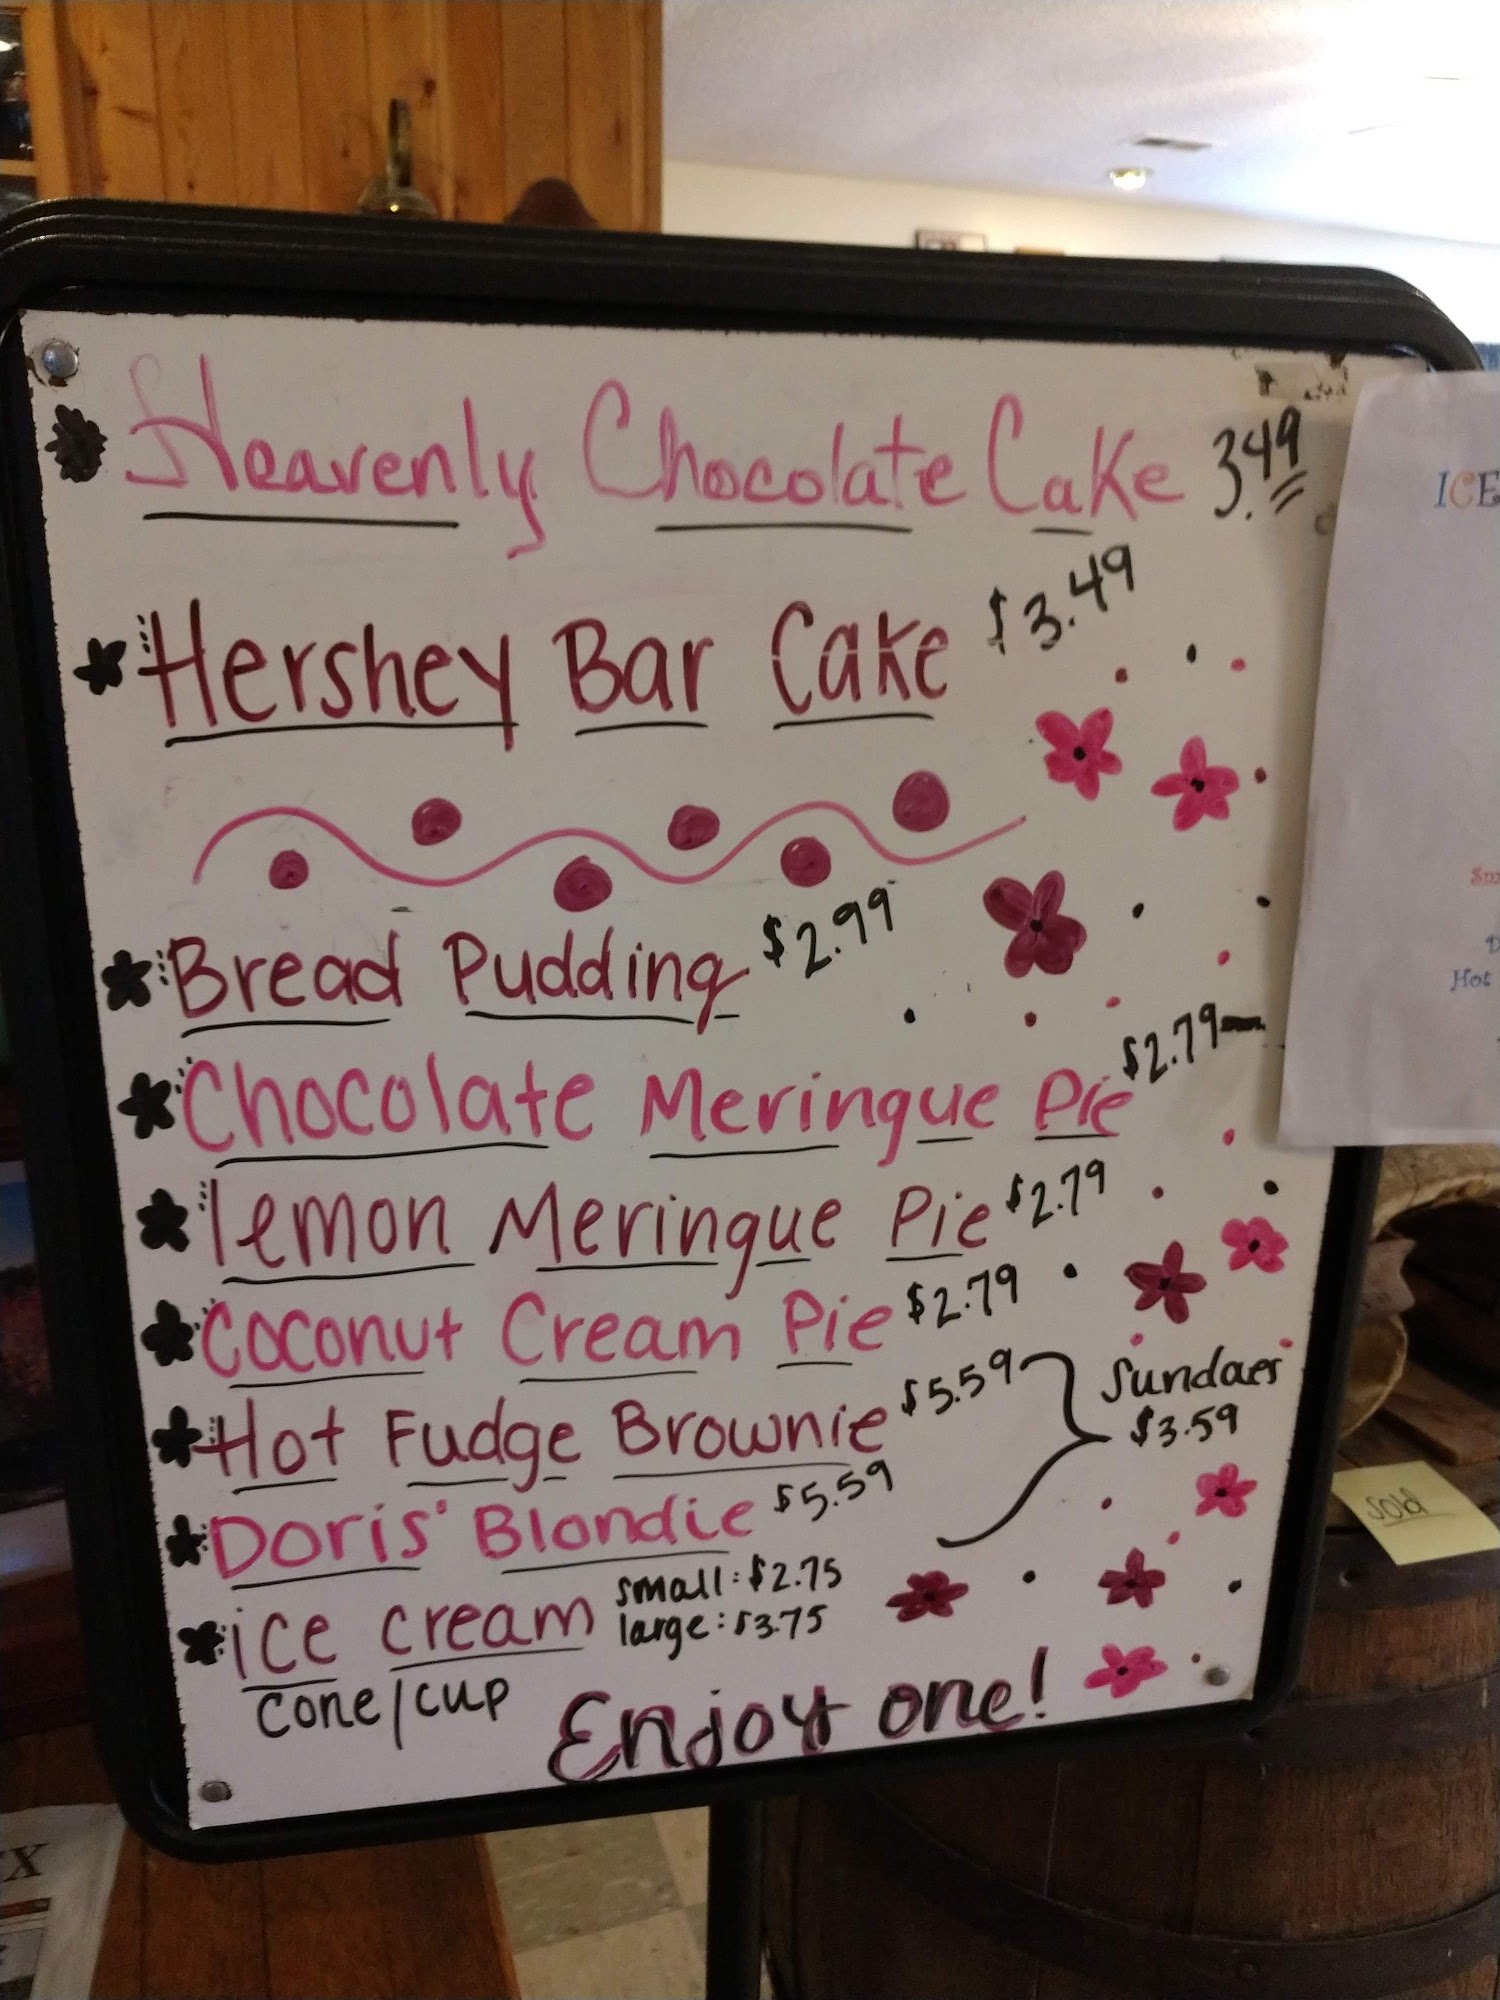 Heavenly Chocolate Cake 3.49
Hershey Bar Cake $3.49
Bread Pudding $2.99
Chocolate Meringue Pie $2.79
lemon Meringue Pie $2.79
Coconut Cream Pie $2.79
Hot Fudge Brownie $5.59
Doris' Blondie $5.59
Sundaes
$3.59
ice cream small: $2.75
large: $3.75
cone/cup
Enjoy one!
ICE
Hot
Sold
X